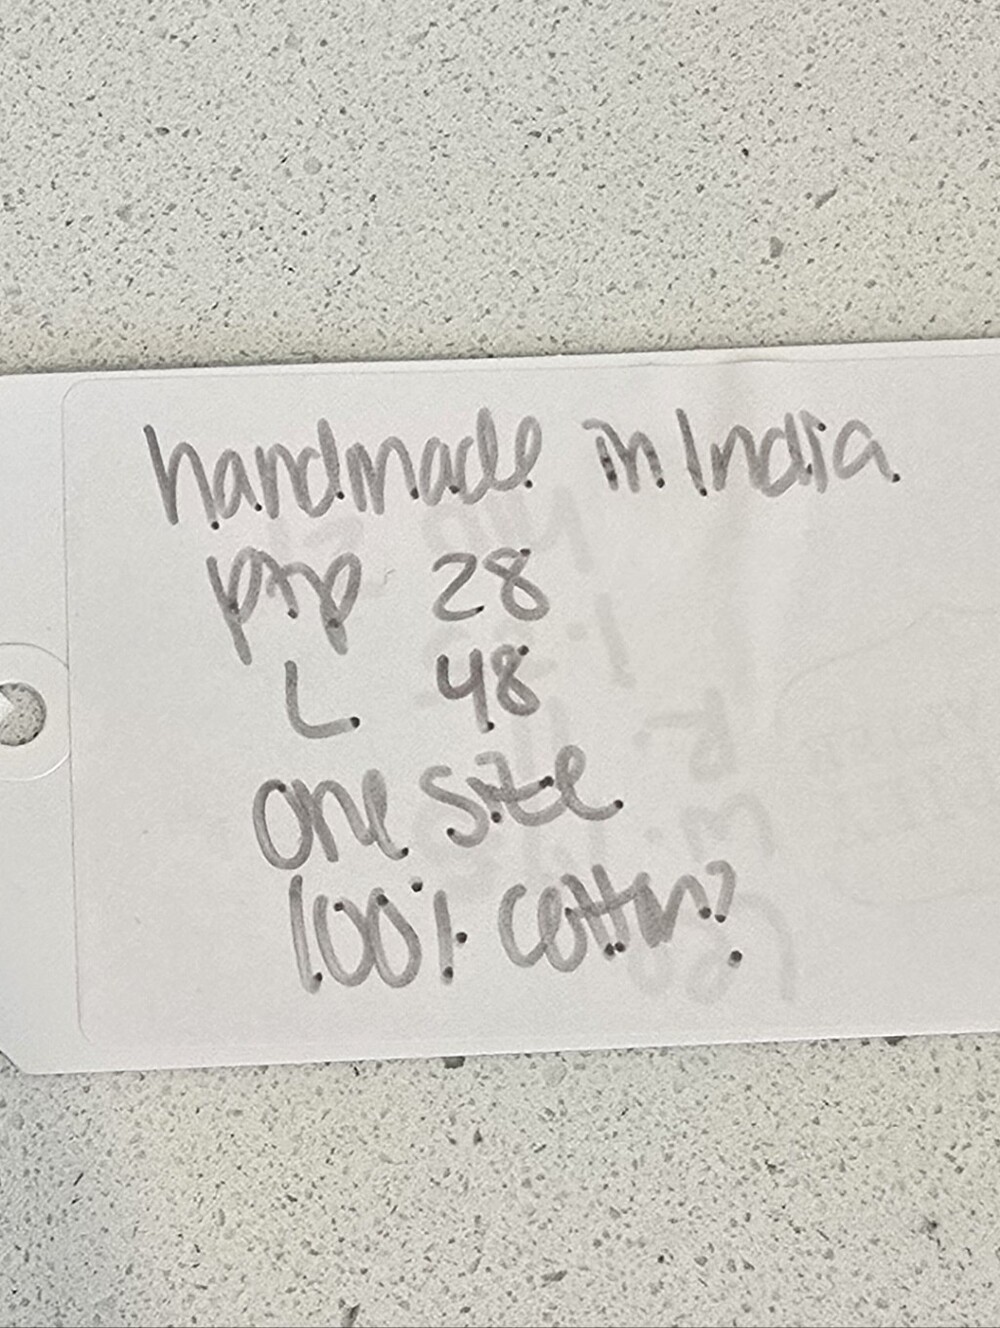 handmade in India
ptp 28
L 48
one size
100% cotton?